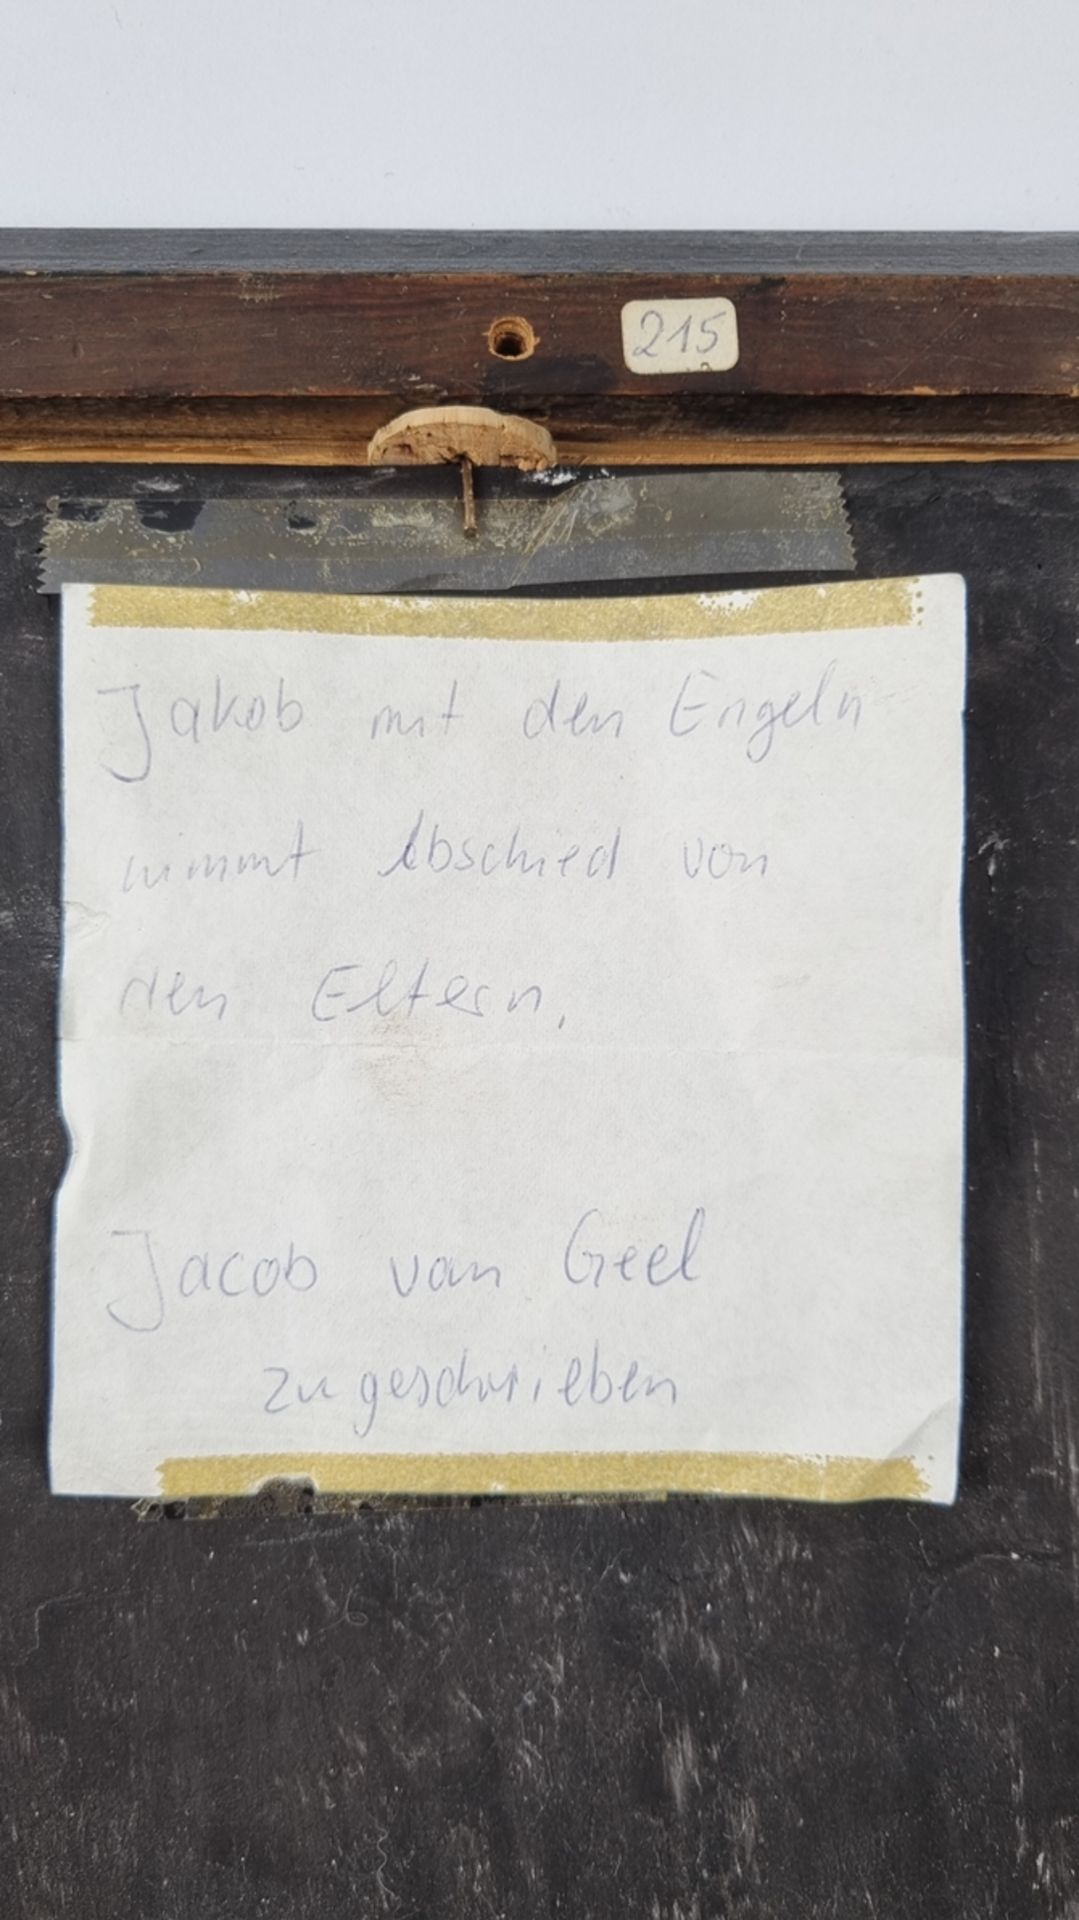 215
Jakob mit den Engeln
nimmt Abschied von
den Eltern.
Jacob van Geel
zugeschrieben